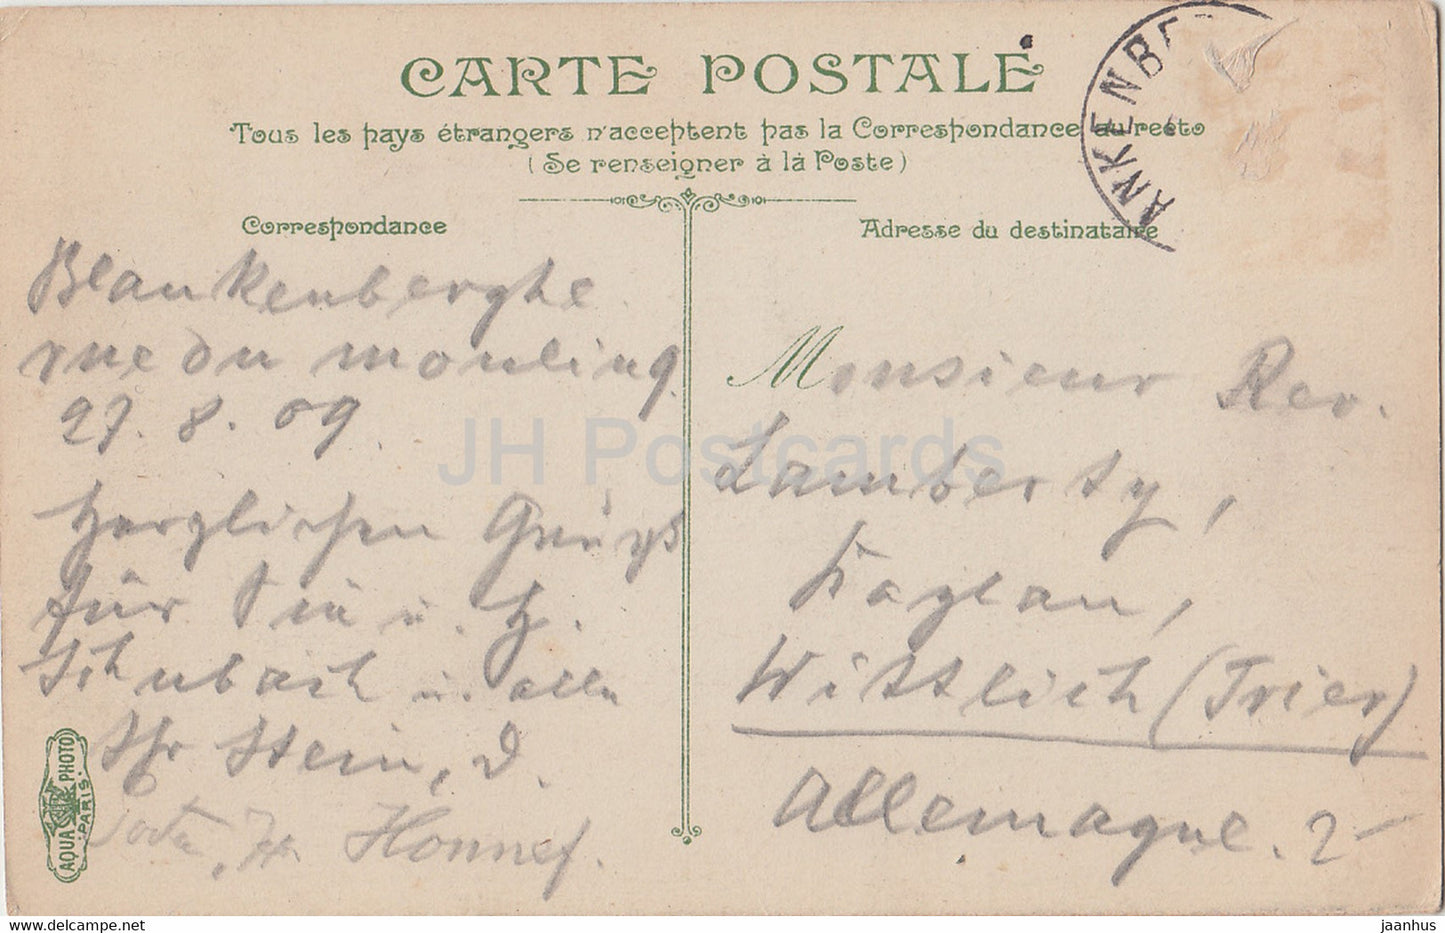 CARTE POSTALE
Tous les pays étrangers n'acceptent pas la Correspondance au recto
(Se renseigner à là Poste)
Correspondance
Adresse du destinataire
ANKENBE
Blankenberghe
rue du mouling
27. 8. 09.
Herzlichen Gruß
für Sie u. H.
Schubach u. alle
Ihr Stein, d.
Honnef.
Monsieur Rev.
Lamberty,
Kaplan,
Wittlich (Trier)
Allemagne. 2
AQUA PHOTO
PARIS
JH Postcards
delcampe.net
jaanhus